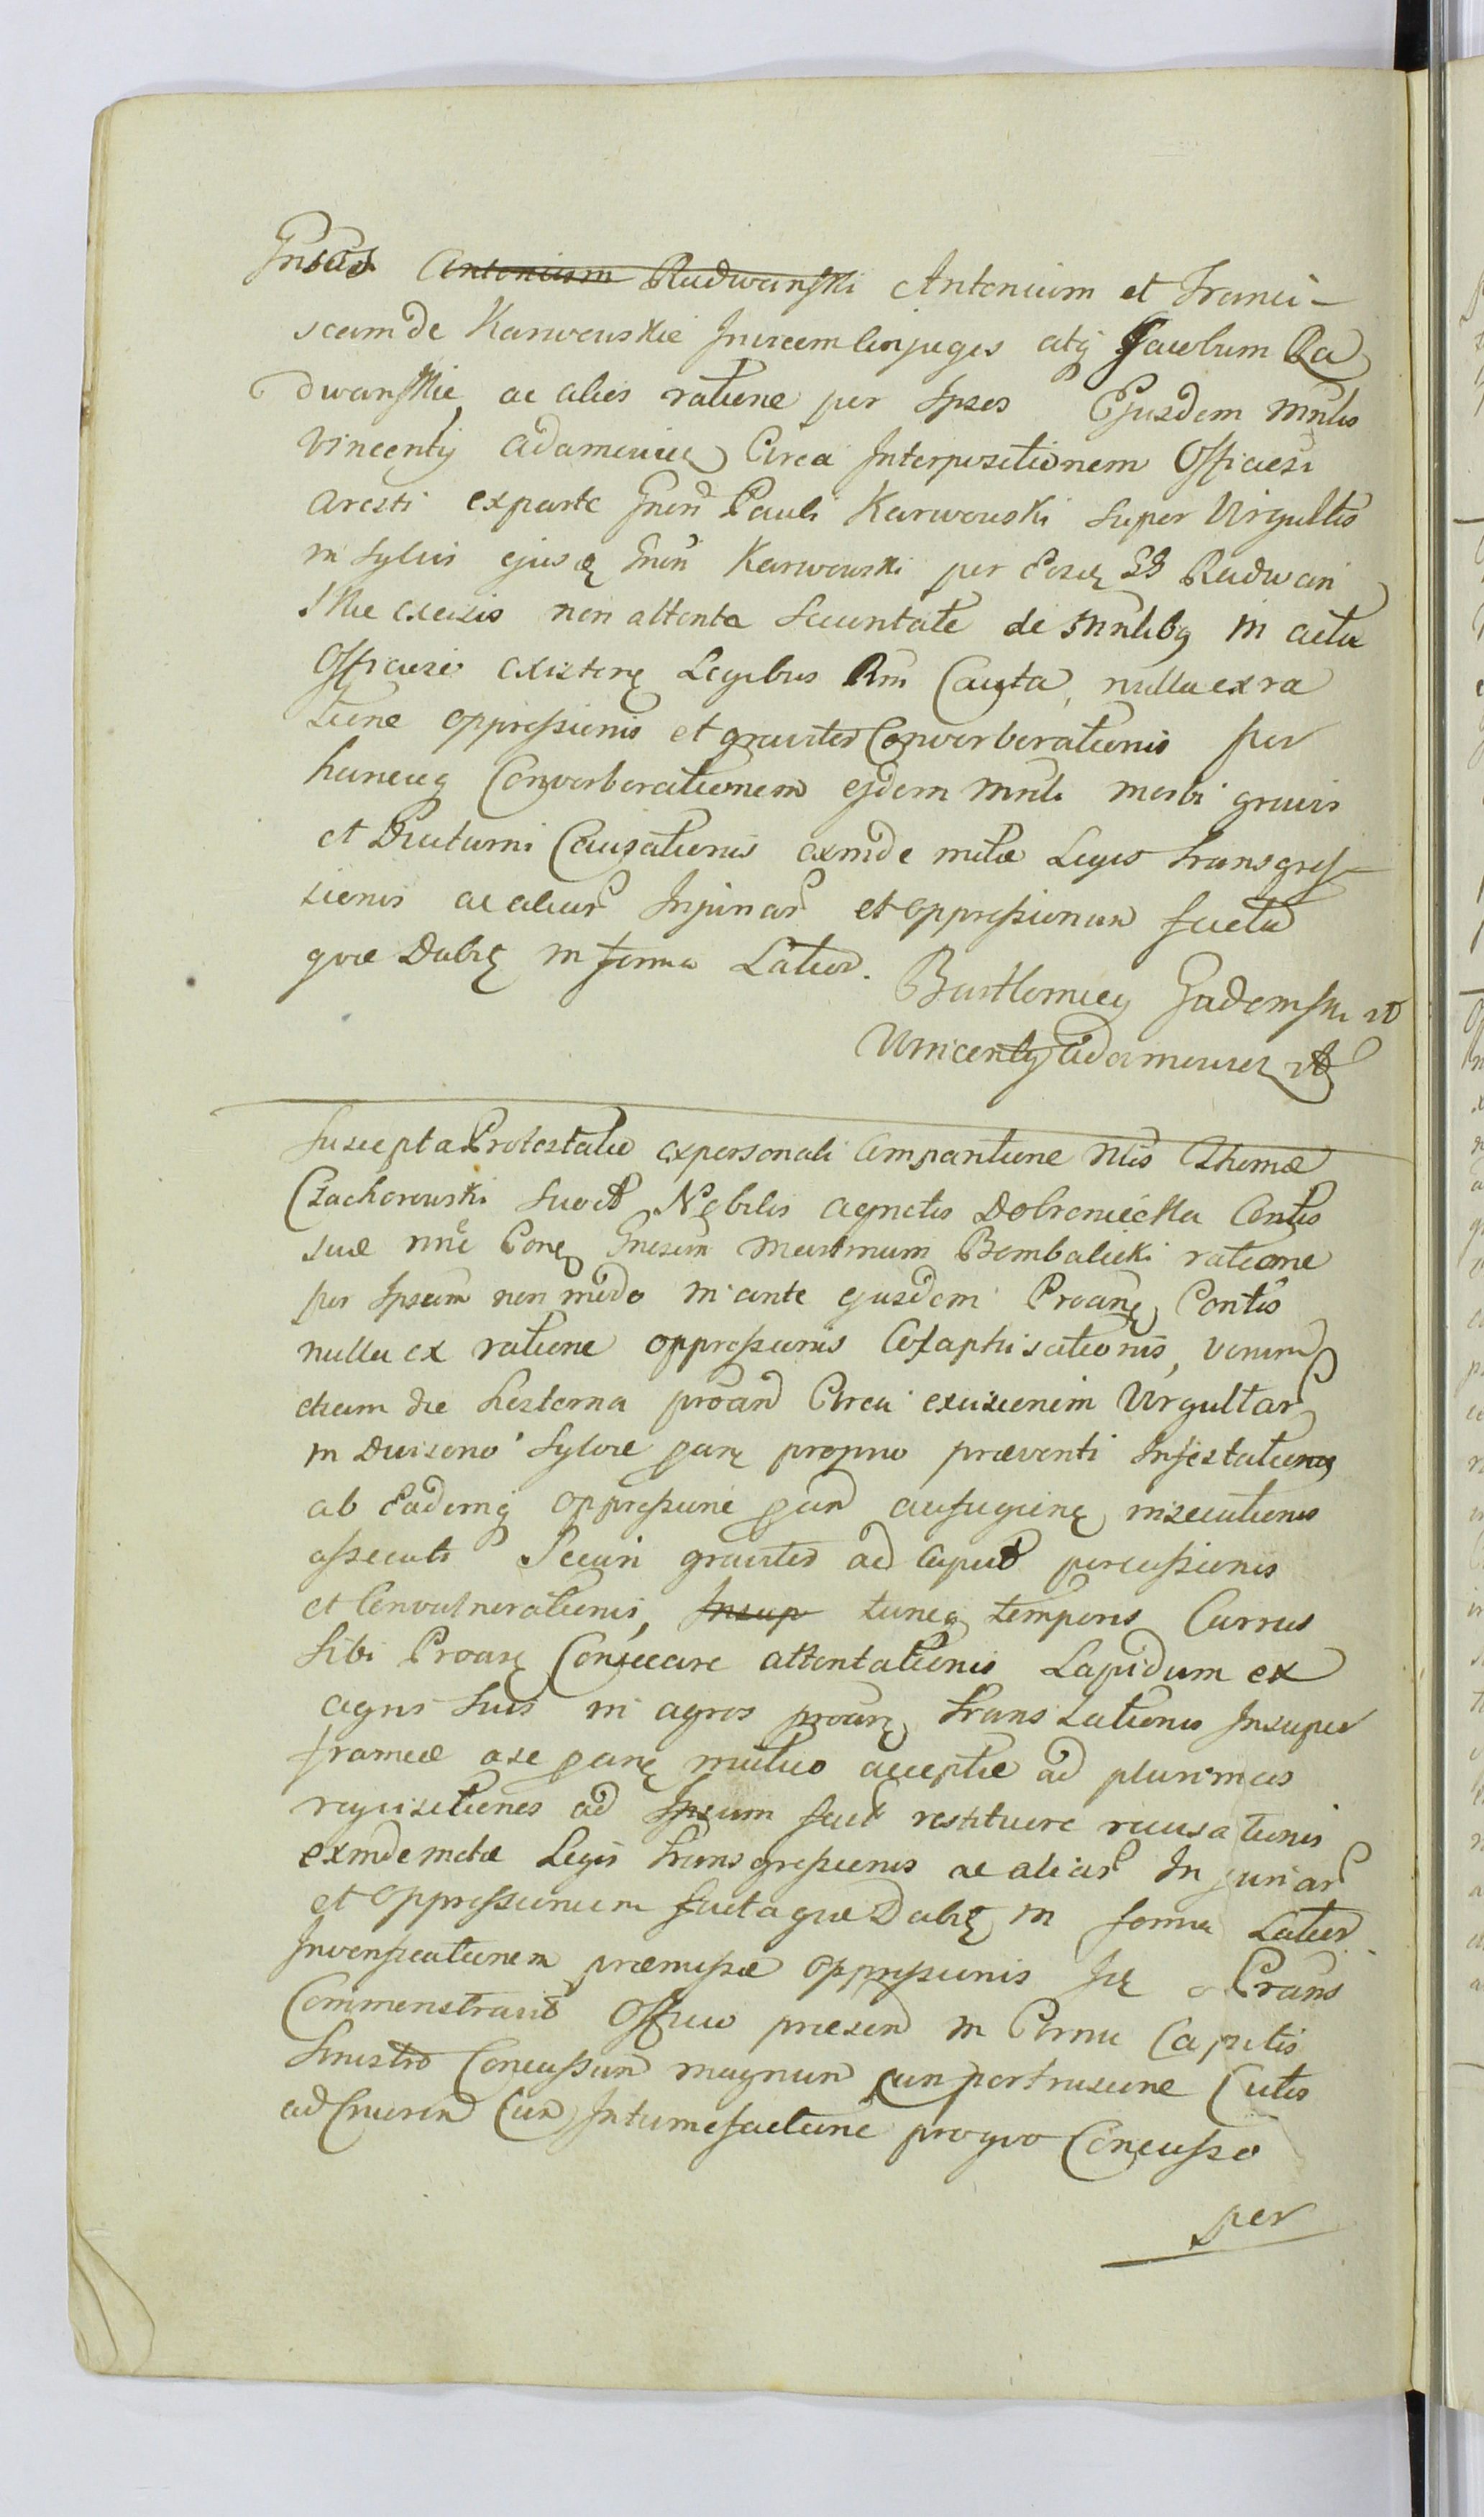 Gnsos Antonium Radwanski Antonium et Franci-
scam de Karwowskie Invicem Conjuges atq Jacobum Ra
dwanskie, ac alios ratione per Ipsos Ejusdem Mnlis
Vincentij Adamowicz Circa Interpositionem Officiosi
Aresti ex parte Gnsi Pauli Karwowski super Virgultis
in Sylvis ejusd Gnsi Karwowski per Eosd GG Radwan
skie excisis non attenta Securitate de Mnlibq in actu
Officioso existen Legibus Rni Cauta, nulla ex ra
tione oppressionis et graviter Converberationis per
hancq Converberationem ejdem Mnli morbi gravis
et Diuturni Causationis exinde mitae Legis transgres-
sionis ac aliar Injuriar et oppressionum facta
quae Dabit in forma Latior.
Bartlomiey Gadomski
Vincenty Adamowicz
Suscepta Protestatio ex personali Comparitione Nlis Thomae
Czachorowski Suo et Nobilis Agnetis Dobroniecka Contis
suae nnē Cone Gnosum Martinum Bombalicki ratione
per Ipsum non modo in ante ejusdem Proane Contis
nulla ex ratione oppressionis Colaphisationis, verum
etiam die hesterna proan Circa excisionem Virgultar
in Duiseno Sylvae pane proprio praeventi Infestationis
ab Eademq oppressione pan aufugien insecutionis
assecuti Securi graviter ad Caput percussionis
et Convulnerationis, Insup tuncq temporis Currus
Sibi Proane Consecare attentationis Lapidum ex
agris suis in agros proane translationis Insuper
frameae a se pane mutuo acceptae ad plurimas
requisitiones ad Ipsum fact restituere recusationis
exinde mitae Legis transgressionis ac aliar Injuriar
et oppressionum facta quae Dabit in forma Latior
Inversificationem praemissae oppressionis Id Prans
Commonstravit Officio praesen in Cornu Capitis
Sinistro Concussum magnum cum portrusione Cutis
ad Cruorem Cum Intumefactione pro quo Concusso
per